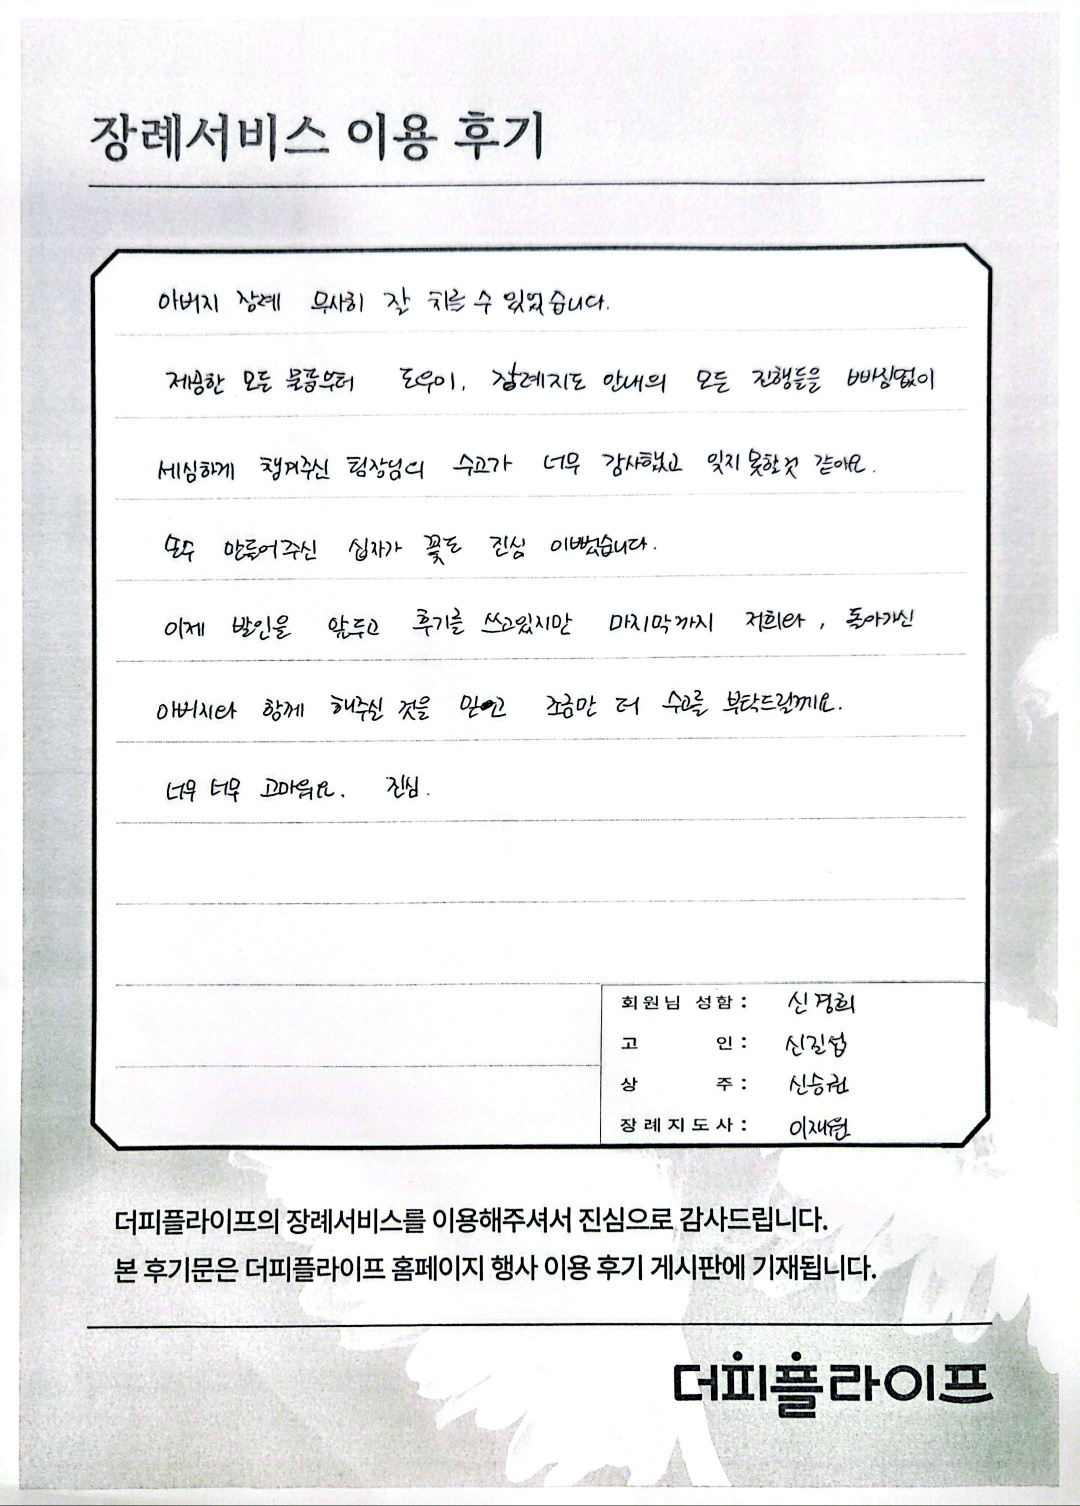 장례서비스 이용 후기
아버지 장례 무사히 잘 치를 수 있었습니다.
제공한 모든 물품부터 도우미, 장례지도 안내의 모든 진행들을 빠짐없이
세심하게 챙겨주신 팀장님의 수고가 너무 감사했고 잊지 못할것 같아요.
만들어주신 십자가 꽃도 진심 이뻤습니다.
이제 발인을 앞두고 후기를 쓰고있지만 마지막까지 저희와, 돌아가신
아버지와 함께 해주실 것을 믿고 조금만 더 수고를 부탁드릴께요.
너무 너무 고마워요. 진심.
회원님 성함 : 신경희
고 인 : 신길섭
상 주 : 신승권
장례지도사 : 이재원
더피플라이프의 장례서비스를 이용해주셔서 진심으로 감사드립니다.
본 후기문은 더피플라이프 홈페이지 행사 이용 후기 게시판에 기재됩니다.
더피플라이프